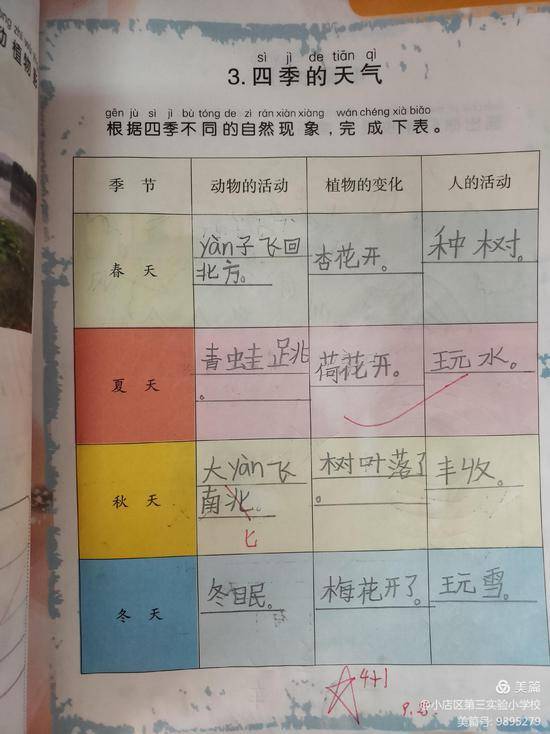 sì jì de tiān qì
3.四季的天气
gēn jù sì jì bù tóng de zì rán xiàn xiàng wán chéng xià biǎo
根据四季不同的自然现象,完成下表。
季 节 动物的活动 植物的变化 人的活动
春 天
yàn子飞回
北方。
杏花开。
种树。
夏 天
青蛙跳
。
荷花开。
玩水。
秋 天
大yàn飞
南北。
匕
树叶落了
。
丰收。
冬 天
冬眠。
梅花开了。
玩雪。
4+1
美篇
@小店区第三实验小学校
美篇号: 9895279